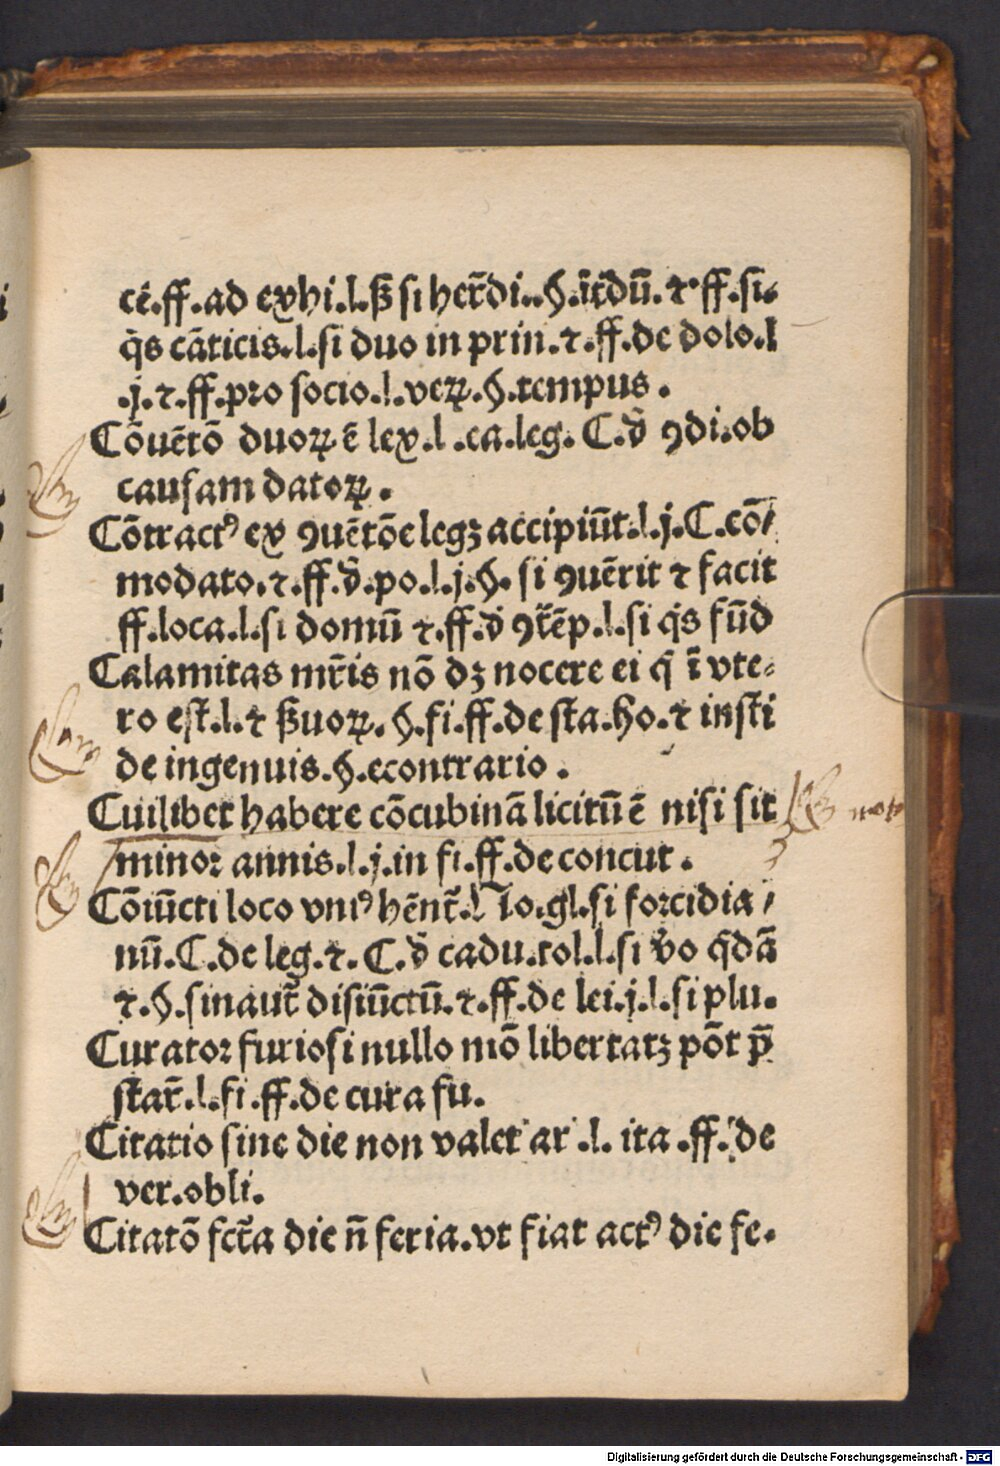 cē.ff.ad exhi.l.ꝟ si her̃di..§.ĩr̃dũ.⁊ ff.si⸗
q̇s cãticis.l.si duo in prin.⁊.ff.de dolo.l
.j.⁊.ff.pro socio.l.veꝝ.§.tempus.
Cõuẽtõ duoꝝ ẽ lex.l.ea.leg. C.d̾ ꝯdi.ob
causam datoꝝ.
Cõtractꝰ ex ꝯuẽtõe legꝫ accipiũt.l.j.C.cõ/
modato.⁊.ff.d̾.po.l.j.§. si ꝯuẽrit ⁊ facit
ff.loca.l.si domũ ⁊.ff.d̾ ꝯt̃ẽp.l.si q̇s fũd
Calamitas mr̃is nõ dꝫ nocere ei q̇ ĩ vte⸗
ro est̃.l.⁊ ꝟuoꝝ.§.fi.ff.de sta.ho.⁊ insti
de ingenuis.§.econtrario.
Cuilibet habere cõcubinã licitũ ẽ nisi sit
minor annis.l.j.in fi.ff.de concut.
Cõiũcti loco vniꝰ hẽnt̃.l Io.gl.si forcidia/
nũ.C.de leg.⁊.C.d̾ cadu.tol.l.si v̾o q̃dã
⁊.§.sinaut̃ disiũctũ.⁊.ff.de lei.j.l.si plu.
Curator furiosi nullo mõ libertatꝫ põt p̃
star̃.l.fi.ff.de cura fu.
Citatio sine die non valet ar .l. ita .ff. de
ver.obli.
Citatõ fct̃a die ñ feria.vt fiat actꝰ die fe⸗
Digitalisierung gefördert durch die Deutsche Forschungsgemeinschaft - DFG